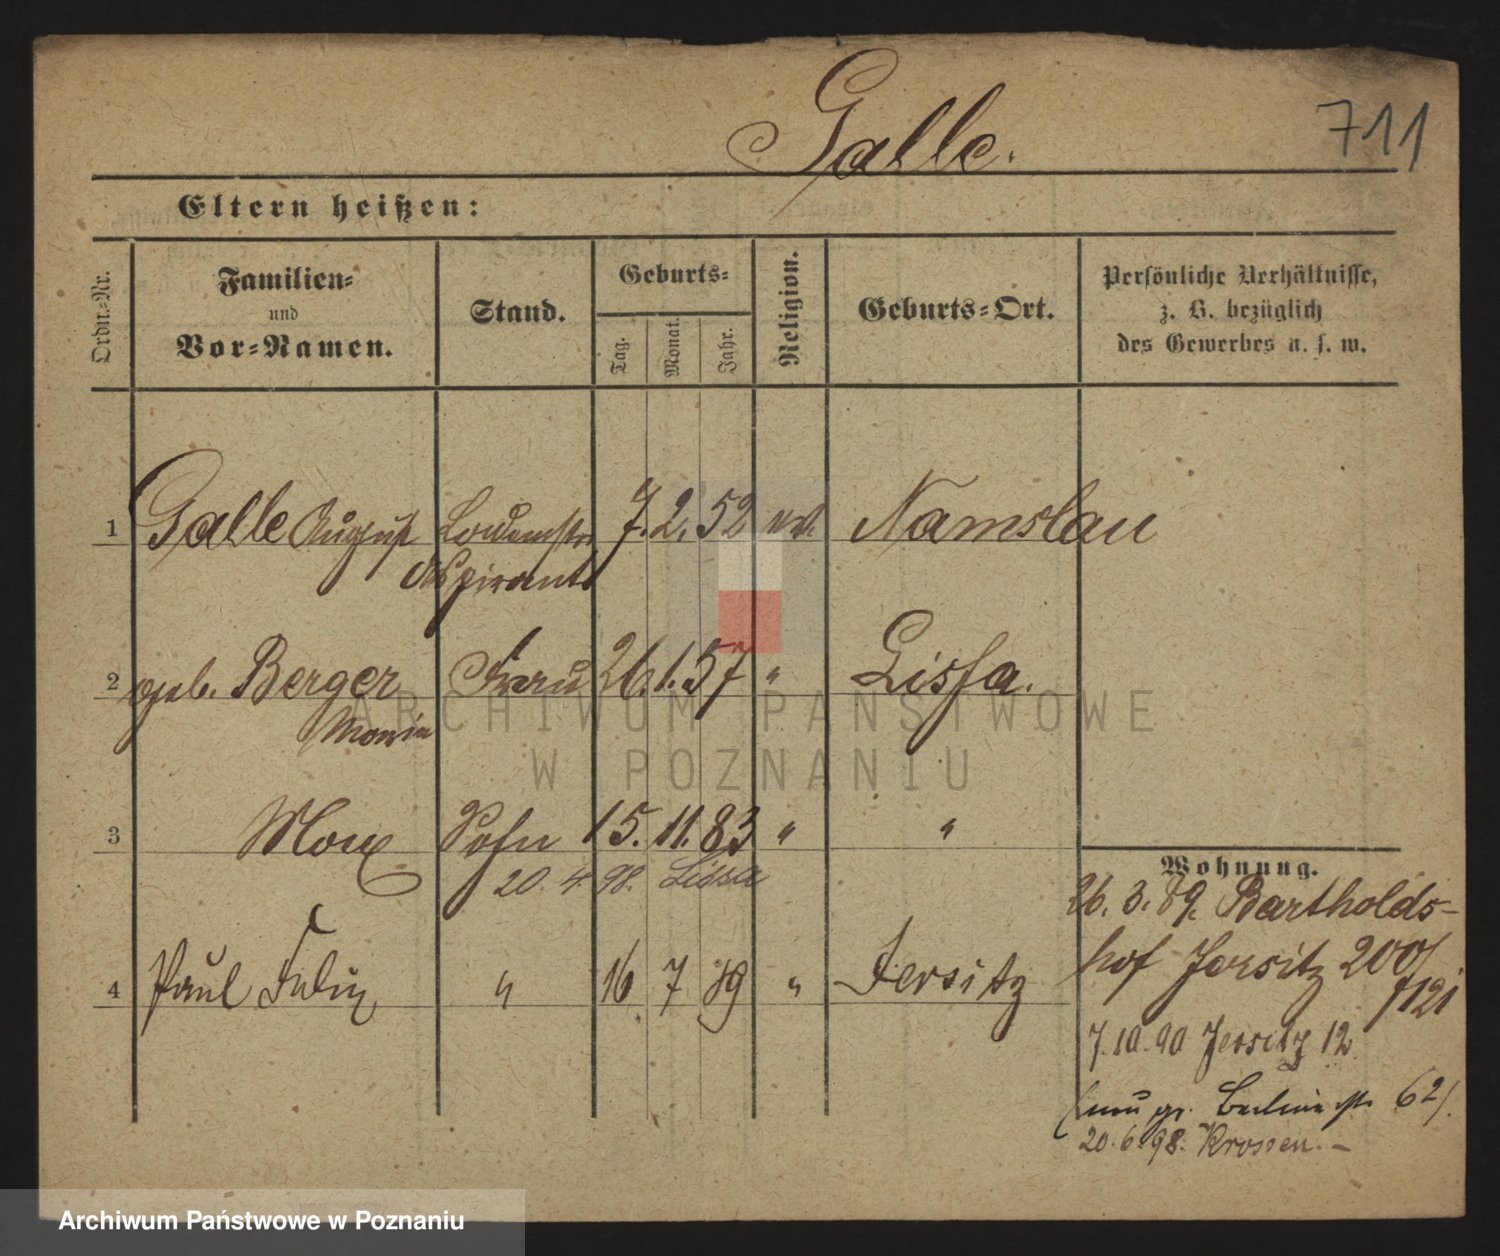 Galle.
711
Eltern heißen:
Ordn.-Nr.
Familien-
und
Vor-Namen.
Stand.
Geburts-
Tag.
Monat.
Jahr.
Religion.
Geburts-Ort.
Persönliche Verhältnisse,
z. B. bezüglich
des Gewerbes u. s. w.
1 Galle August 7. 2. 52 ev. Namslau
Aspirant
2 geb. Berger Frau 26. 1. 57 " Lissa.
Maria
3 Max Sohn 15. 11. 83 " "
20. 4. 98. Lissa
4 Paul Felix " 16 7 89 " Jersitz
Wohnung.
26. 3. 89. Bartholds-
hof Jersitz 200/
121
7. 10. 90 Jersitz 12
(neu gr. Berlinerstr 62).
20. 6. 98. Krossen. —
ARCHIWUM PAŃSTWOWE
W POZNANIU
Archiwum Państwowe w Poznaniu